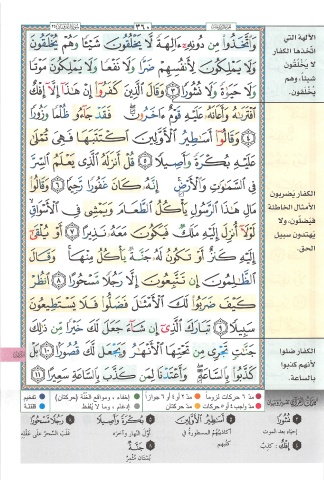 ٣٦٠
وَٱتَّخَذُوا۟ مِن دُونِهِۦٓ ءَالِهَةً لَّا يَخْلُقُونَ شَيْـًٔا وَهُمْ يُخْلَقُونَ
وَلَا يَمْلِكُونَ لِأَنفُسِهِمْ ضَرًّا وَلَا نَفْعًا وَلَا يَمْلِكُونَ مَوْتًا
وَلَا حَيَوٰةً وَلَا نُشُورًا ٣ وَقَالَ ٱلَّذِينَ كَفَرُوٓا۟ إِنْ هَـٰذَآ إِلَّآ إِفْكٌ
ٱفْتَرَىٰهُ وَأَعَانَهُۥ عَلَيْهِ قَوْمٌ ءَاخَرُونَ ۖ فَقَدْ جَآءُو ظُلْمًا وَزُورًا
٤ وَقَالُوٓا۟ أَسَـٰطِيرُ ٱلْأَوَّلِينَ ٱكْتَتَبَهَا فَهِىَ تُمْلَىٰ
عَلَيْهِ بُكْرَةً وَأَصِيلًا ٥ قُلْ أَنزَلَهُ ٱلَّذِى يَعْلَمُ ٱلسِّرَّ
فِى ٱلسَّمَـٰوَٰتِ وَٱلْأَرْضِ ۚ إِنَّهُۥ كَانَ غَفُورًا رَّحِيمًا ٦ وَقَالُوا۟
مَالِ هَـٰذَا ٱلرَّسُولِ يَأْكُلُ ٱلطَّعَامَ وَيَمْشِى فِى ٱلْأَسْوَاقِ ۙ
لَوْلَآ أُنزِلَ إِلَيْهِ مَلَكٌ فَيَكُونَ مَعَهُۥ نَذِيرًا ٧ أَوْ يُلْقَىٰٓ
إِلَيْهِ كَنزٌ أَوْ تَكُونُ لَهُۥ جَنَّةٌ يَأْكُلُ مِنْهَا ۚ وَقَالَ
ٱلظَّـٰلِمُونَ إِن تَتَّبِعُونَ إِلَّا رَجُلًا مَّسْحُورًا ٨ ٱنظُرْ
كَيْفَ ضَرَبُوا۟ لَكَ ٱلْأَمْثَـٰلَ فَضَلُّوا۟ فَلَا يَسْتَطِيعُونَ
سَبِيلًا ٩ تَبَارَكَ ٱلَّذِىٓ إِن شَآءَ جَعَلَ لَكَ خَيْرًا مِّن ذَٰلِكَ
جَنَّـٰتٍ تَجْرِى مِن تَحْتِهَا ٱلْأَنْهَـٰرُ وَيَجْعَل لَّكَ قُصُورًۢا ١٠ بَلْ
كَذَّبُوا۟ بِٱلسَّاعَةِ ۖ وَأَعْتَدْنَا لِمَن كَذَّبَ بِٱلسَّاعَةِ سَعِيرًا ١١
الآلهة التي
اتخذها الكفار
لا يخلقون
شيئاً، وهم
يُخلقون.
الكفار يضربون
الأمثال الخاطئة
فيضلون، ولا
يهتدون سبيل
الحق.
الكفار ضلوا
لأنهم كذبوا
بالساعة.
مد ٦ حركات لزوماً
مد ٢ أو ٤ أو ٦ جوازاً
إخفاء، ومواقع الغنة (حركتان)
تفخيم
مد واجب ٤ أو ٥ حركات
مد حركتان
إدغام، وما لا يلفظ
قلقلة
نُشُورًا
إحياء بعد الموت
إِفْكٌ : كذب
أَسَاطِيرُ الْأَوَّلِينَ
أكاذيبهم المسطورة في
كتبهم
بُكْرَةً وَأَصِيلًا
أول النهار وآخره
جَنَّةٌ
بستان مثمر
رَجُلًا مَسْحُورًا
غلب السحر على عقله